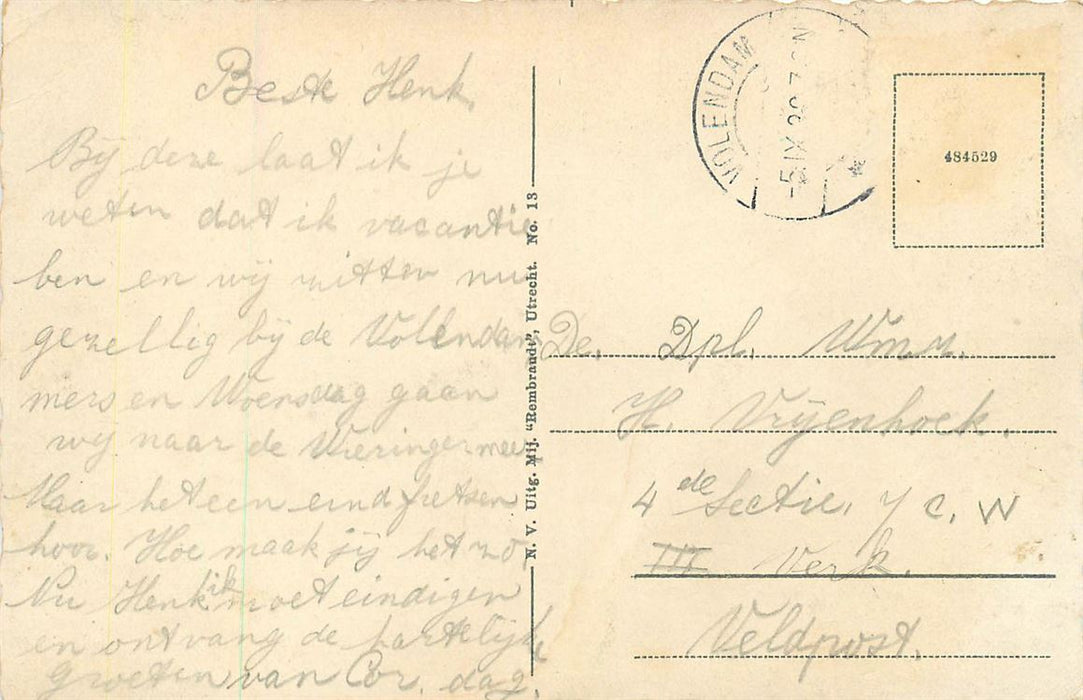 Beste Henk
Bij deze laat ik je
weten dat ik vacantie
ben en wij zitten nu
gezellig bij de Volendam
mers en Woensdag gaan
wij naar de Wieringermeer
Maar het een eind fietsen
hoor. Hoe maak jij het zo
Nu Henk ik moet eindigen
en ontvang de hartelijke
groeten van Cor. dag.
N. V. Uitg. Mij. "Rembrandt", Utrecht. No. 13
VOLENDAM
-5.IX
484529
De. Dpl. Wmr.
H. Vrijenhoek.
4de Sectie. C. W
III Verk.
Veldpost.